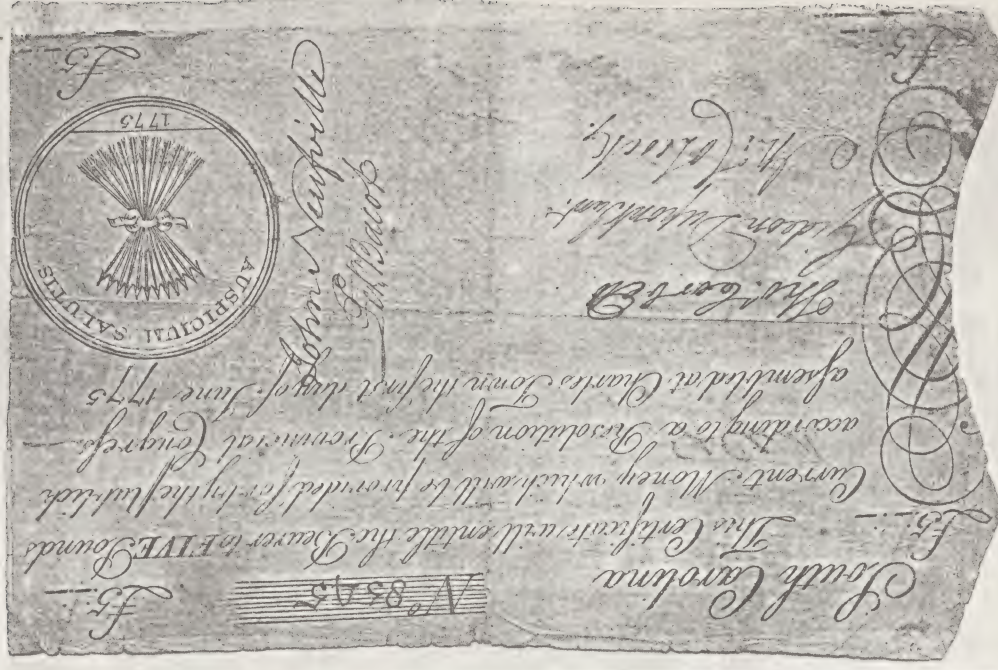 £5:..:..
South Carolina
No 8545
This Certificate will entitle the Bearer to FIVE Pounds
£5:..:..
Current Money which will be provided for by the Publick
according to a Resolution of the Provincial Congreſs
aſsembled at Charles Town the first day of June 1775
Tho.s Corbett
Gideon Dupont Junr.
John Neufville
Pet. Bacot
AUSPICIUM SALUTIS
1775
£5:..:..
£5:..:..